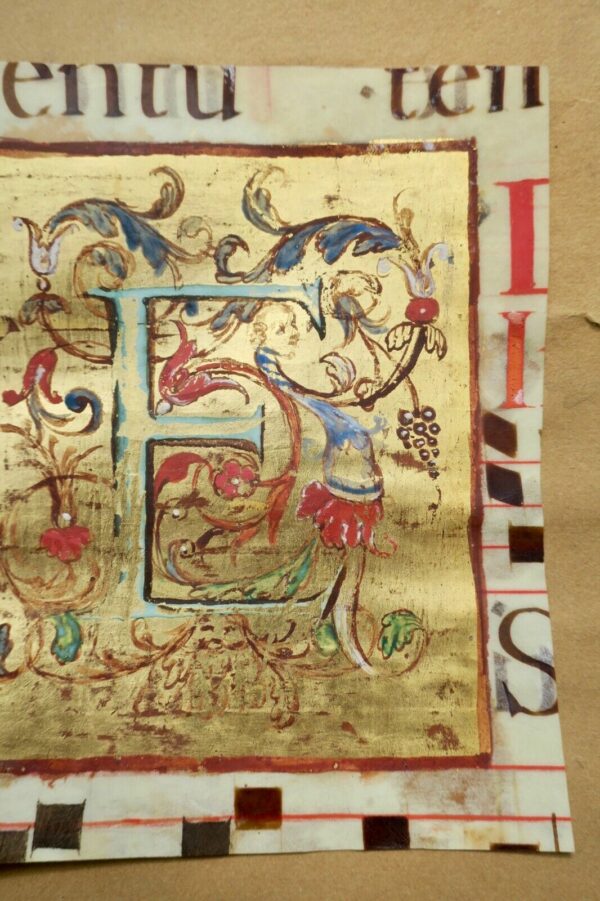 entu ten
E
I
S